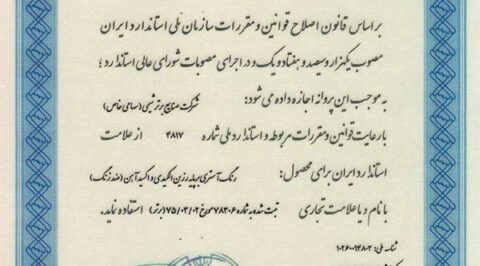 بر اساس قانون اصلاح قوانین و مقررات سازمان ملی استاندارد ایران
مصوب یکهزار و سیصد و هفتاد و یک و در اجرای مصوبات شورای عالی استاندارد ؛
به موجب این پروانه اجازه داده می شود: شرکت صنایع برتر شیمی (سهامی خاص)
با رعایت قوانین و مقررات مربوطه و استاندارد ملی شماره ۴۸۱۷ از علامت
استاندارد ایران برای محصول: رنگ آستری بر پایه رزین الکیدی و اکسید آهن (ضد زنگ)
با نام و یا علامت تجاری ثبت شده به شماره ۷۸۳۰۶ مورخ ۷۵/۰۳/۰۲ (برتر) استفاده نماید.
شناسه ملی: ۱۰۲۶۰۰۹۴۸۰۲